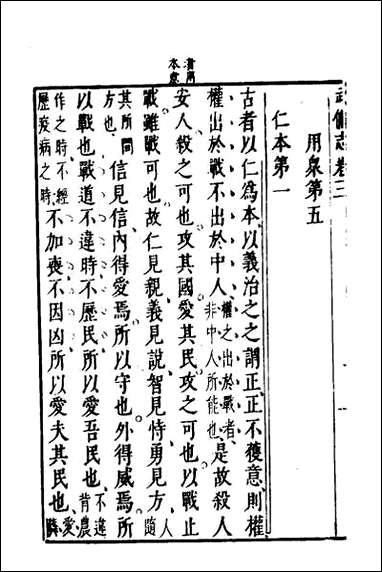 武備志卷三
用衆第五
仁本第一
古者以仁爲本以義治之之謂正正不獲意則權
權出於戰不出於中人權之出於戰者非中人所能也是故殺人
安人殺之可也攻其國愛其民攻之可也以戰止
戰雖戰可也故仁見親義見說智見恃勇見方人隨
其所問方也信見信內得愛焉所以守也外得威焉所
以戰也戰道不違時不歷民所以愛吾民也不違背農
作之時不經歷疫病之時不加喪不因凶所以愛夫其民也愛隣